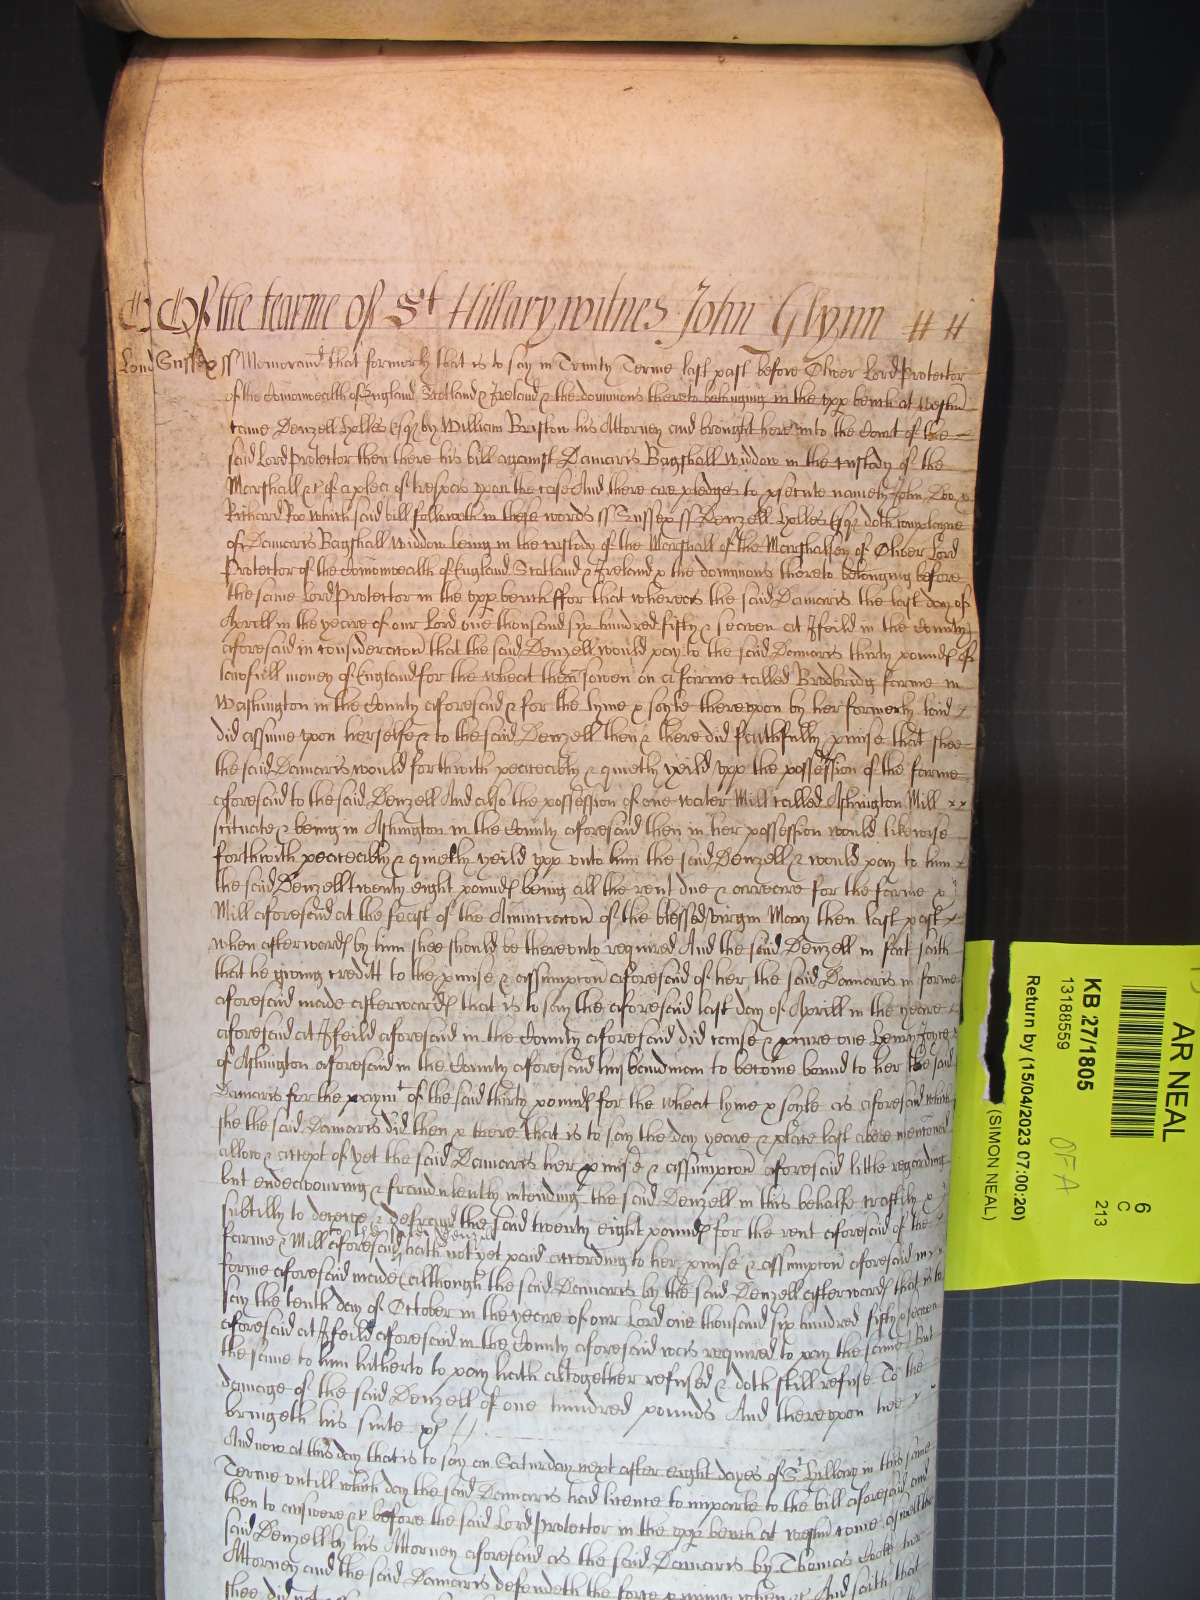 Of the tearme of St Hillary witnes John Glynn
Lond Sussex ss Memorand that formerly that is to say in Trinity Terme last past before Oliver Lord Protector
of the Comonwealth of England Scotland & Ireland & the dominions thereto belonging in the upp bench at Westm
came Denzell Holles Esqr by William Bristow his Attorney and brought here into the Court of the
said Lord Protector then there his bill against Damaris Bagshall Widdow in the custody of the
Marshall &c of a plea of trespas upon the case And there are pledges to psecute namely John Doo &
Richard Roo Which said bill followeth in these words ss Sussex ss Denzell Holles Esqr doth complayne
of Damaris Bagshall Widdow being in the custody of the Marshall of the Marshalsey of Oliver Lord
Protector of the Comonwealth of England Scotland & Ireland & the dominions thereto belonging before
the same Lord Protector in the upp bench ffor that whereas the said Damaris the last day of
Aprill in the yeare of our Lord one thousand six hundred fifty & seaven at Ifeild in the County
aforesaid in consideracon that the said Denzell would pay to the said Damaris thirty pounds of
lawfull money of England for the wheat then sowen on a farme called Brodbridg farme in
Washington in the County aforesaid & for the lyme & soyle thereupon by her formerly laid
did assume upon herselfe & to the said Denzell then & there did faithfully pmise that shee
the said Damaris would forthwith peaceably & quietly yeild upp the possession of the farme
aforesaid to the said Denzell And also the possession of one water Mill called Ashington Mill
scituate & being in Ashington in the County aforesaid then in her possession would likewise
forthwith peaceably & quietly yeild upp unto him the said Denzell & would pay to him
the said Denzell twenty eight pounds being all the rent due & arreare for the farme &
Mill aforesaid at the feast of the Anunciacon of the blessed Virgin Mary then last past
when afterwards by him shee should be thereunto required And the said Denzell in fact saith
that he giving creditt to the pmise & assumpcon aforesaid of her the said Damaris in forme
aforesaid made afterwards that is to say the aforesaid last day of Aprill in the yeare
aforesaid at Ifeild aforesaid in the County aforesaid did cause & pcure one Henry Joyce
of Ashington aforesaid in the County aforesaid husbandman to become bound to her the said
Damaris for the paymt of the said thirty pounds for the wheat lyme & soyle as aforesaid which
she the said Damaris did then & there that is to say the day yeare & place last above menconed
allow & accept of yet the said Damaris her pmise & assumpcon aforesaid little regarding
but endeavouring & fraudulently intending the said Denzell in this behalfe craftily &
subtilly to deceive & defraud the said twenty eight pounds for the rent aforesaid of the
farme & Mill aforesaid to the said Denzell hath not yet paid according to her pmise & assumpcon aforesaid in
forme aforesaid made (although the said Damaris by the said Denzell afterwards that is to
say the tenth day of October in the yeare of our Lord one thousand six hundred fifty & seaven
aforesaid at Ifeild aforesaid in the County aforesaid was required to pay the same) But
the same to him hitherto to pay hath altogether refused & doth still refuse To the
damage of the said Denzell of one hundred pounds And thereupon hee
bringeth his suite &c
And now at this day that is to say on Saturday next after eight dayes of St Hillary in this same
Terme untill which day the said Damaris had licence to imparle to the bill aforesaid and
then to answere &c before the said Lord Protector in the upp bench at Westm come aswell the
said Denzell by his Attorney aforesaid as the said Damaris by Thomas Cooke her
Attorney and the said Damaris defendeth the force & injury when &c And saith that
shee did not
AR NEAL
KB 27/1805
13188559
Return by (15/04/2023 07:00:20)
(SIMON NEAL)
6
C
213